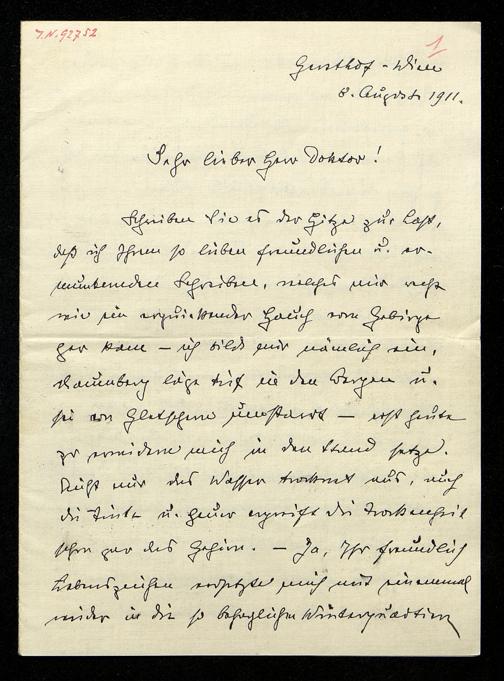 J.N. 92752
1
Gersthof - Wien
8. August 1911.
Sehr lieber Herr Doktor!
Schreiben Sie es der Hitze zur Last,
daß ich Ihrem so lieben freundlichen u. er-
munternden Schreiben, welches mir recht
wie ein erquickender Hauch vom Gebirge
her kam – ich bilde mir nämlich ein,
läge tief in den Bergen u.
sei von Gletschern umstarrt – erst heute
zu erwidern mich in den Stand setze.
Nicht nur das Wasser trocknet aus, auch
die Tinte u. heuer ergreift die Trockenheit
schon gar das Gehirn. – Ja, Ihr freundlich
Lebenszeichen versetzte mich mit einemmal
wieder in die so behaglichen Winterquartiere